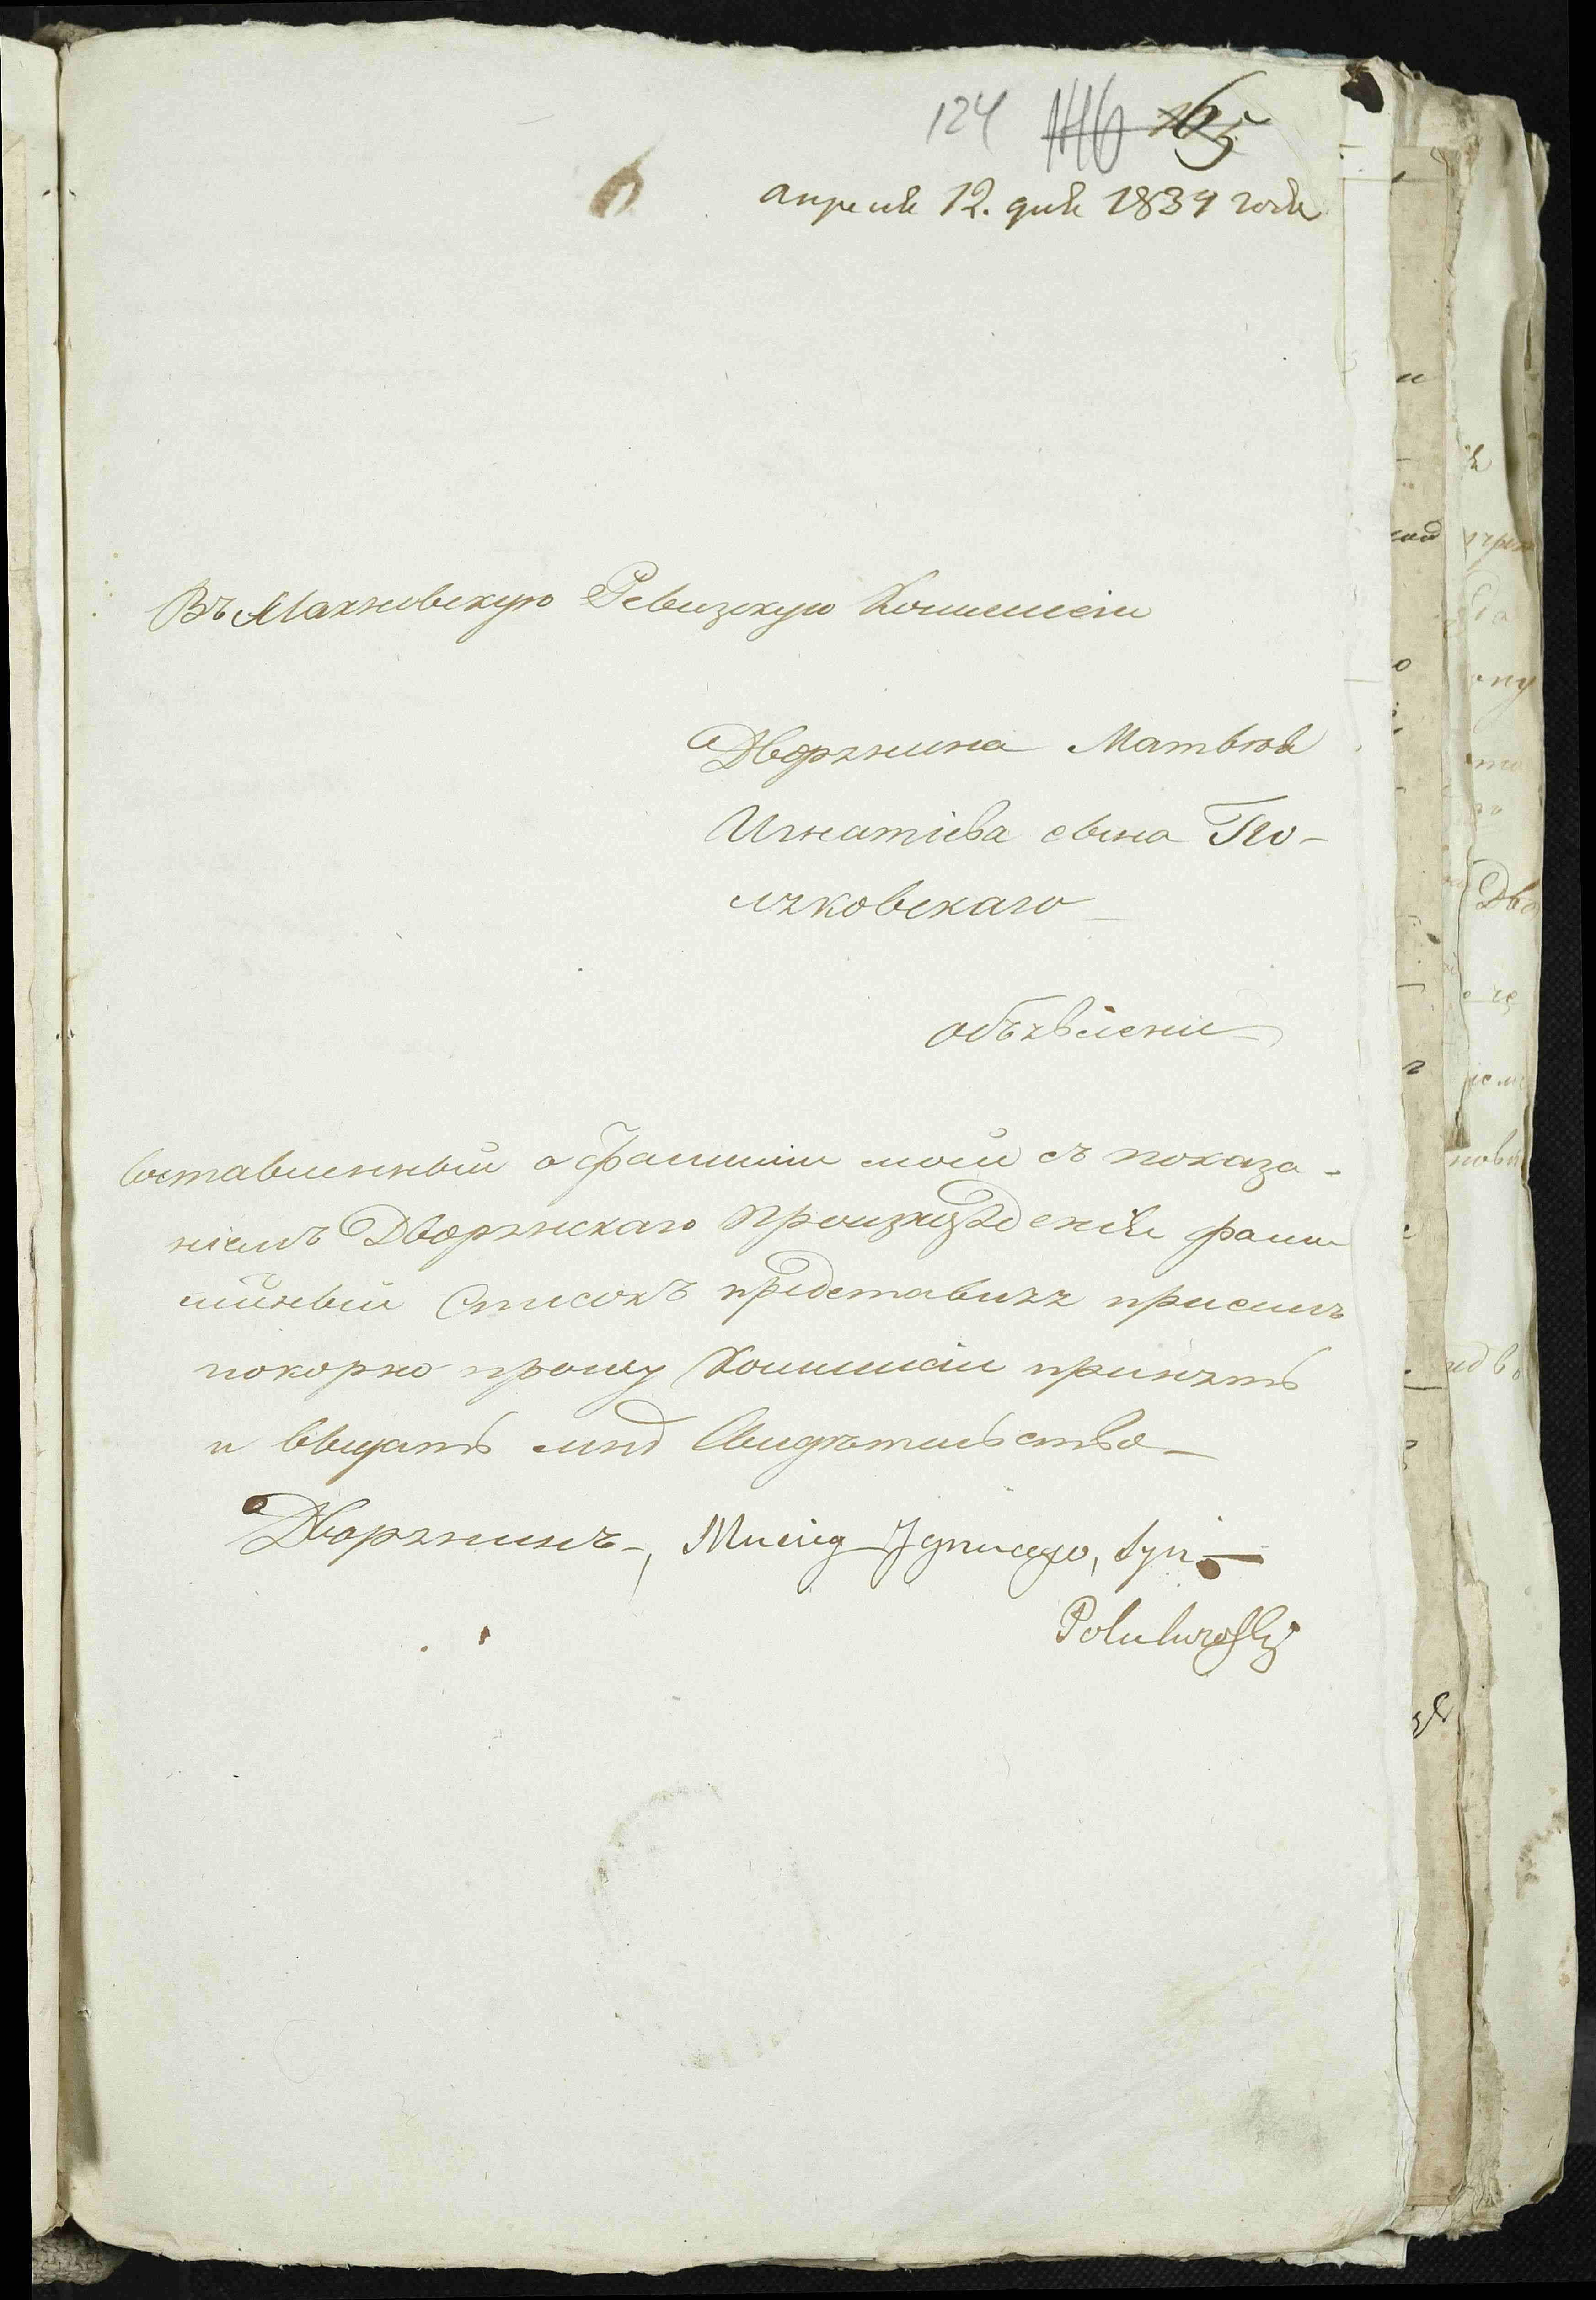 124 146 165
апреля 12. дня 1834 года
Въ Махновскую Ревизкую Коммисіи
Дворянина Матвея
Игнатіева сына По-
ляковскаго
объявленіе
Составленный о Фамиліи моей съ показа-
ніемъ Дворянскаго произхожденія фами
лійный Списокъ представляя присемъ
покорно прошу Коммисіи принять
и выдать мнѣ Свидѣтельство
Дворянинъ, Maciej Ignacego, syn
Polakowski